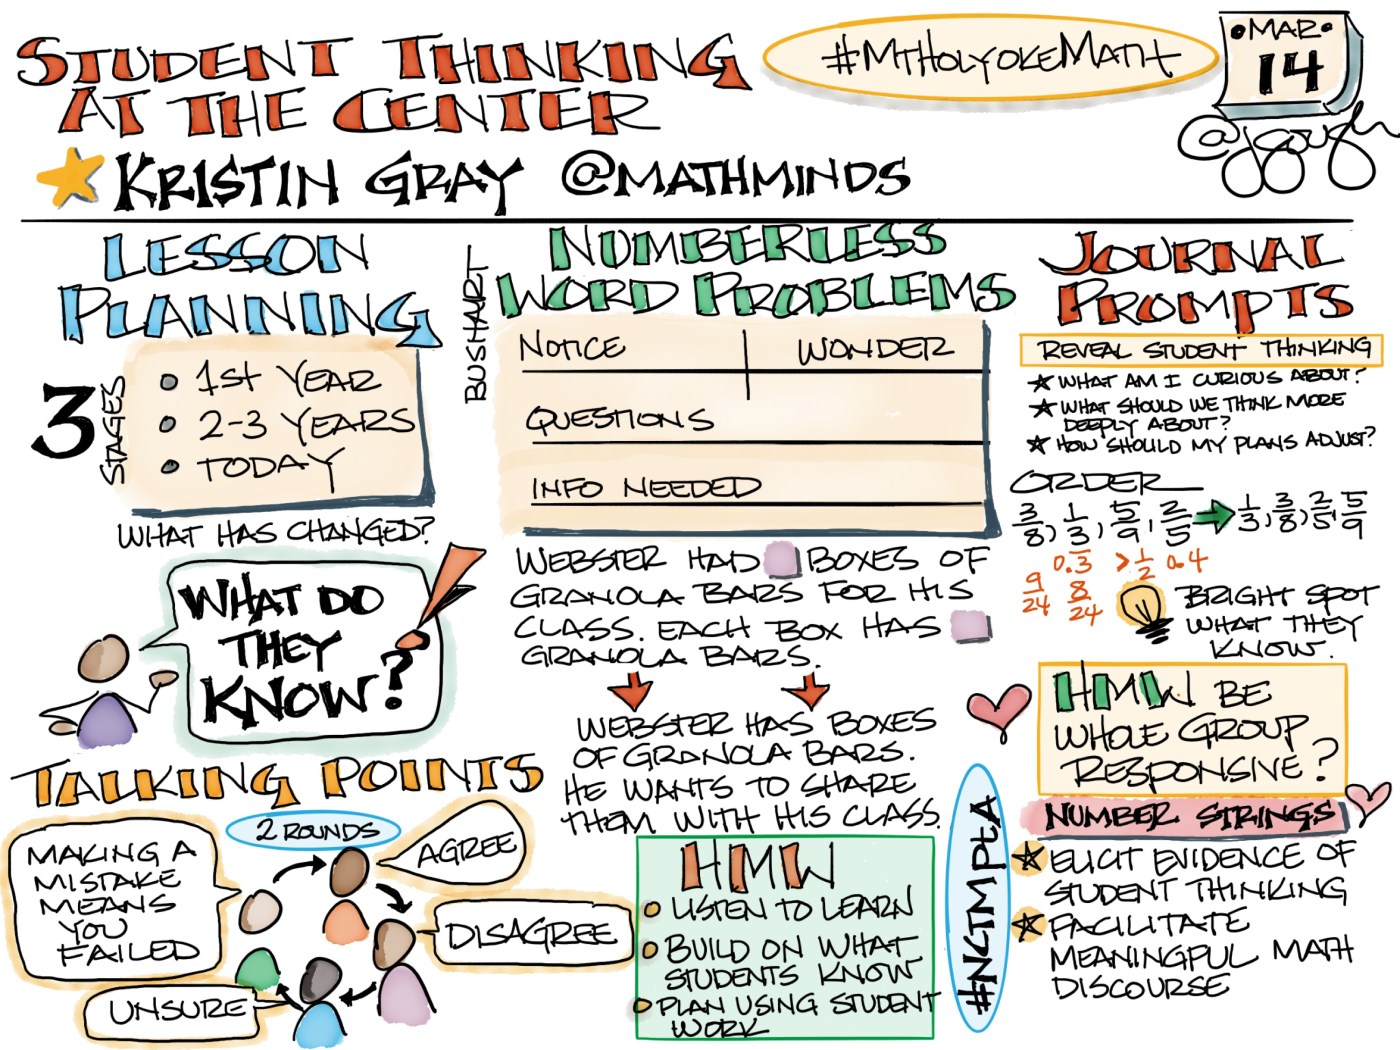 STUDENT THINKING
AT THE CENTER
#MTHOLYOKEMATH
MAR
14
@jgough
KRISTIN GRAY @MATHMINDS
LESSON
PLANNING
3
STAGES
1st YEAR
2-3 YEARS
TODAY
WHAT HAS CHANGED?
WHAT DO
THEY
KNOW?
TALKING POINTS
2 ROUNDS
MAKING A
MISTAKE
MEANS
YOU
FAILED
AGREE
DISAGREE
UNSURE
BUSHART
NUMBERLESS
WORD PROBLEMS
NOTICE
WONDER
QUESTIONS
INFO NEEDED
WEBSTER HAD BOXES OF
GRANOLA BARS FOR HIS
CLASS. EACH BOX HAS
GRANOLA BARS.
WEBSTER HAS BOXES
OF GRANOLA BARS.
HE WANTS TO SHARE
THEM WITH HIS CLASS.
HMW
LISTEN TO LEARN
BUILD ON WHAT
STUDENTS KNOW
PLAN USING STUDENT
WORK
#NCTMP&A
JOURNAL
PROMPTS
REVEAL STUDENT THINKING
WHAT AM I CURIOUS ABOUT?
WHAT SHOULD WE THINK MORE
DEEPLY ABOUT?
HOW SHOULD MY PLANS ADJUST?
ORDER
3/8, 1/3, 5/9, 2/5 → 1/3, 3/8, 2/5, 5/9
0.3̅ >1/2 0.4
9/24 8/24
BRIGHT SPOT
WHAT THEY
KNOW.
HMW BE
WHOLE GROUP
RESPONSIVE?
NUMBER STRINGS
ELICIT EVIDENCE OF
STUDENT THINKING
FACILITATE
MEANINGFUL MATH
DISCOURSE